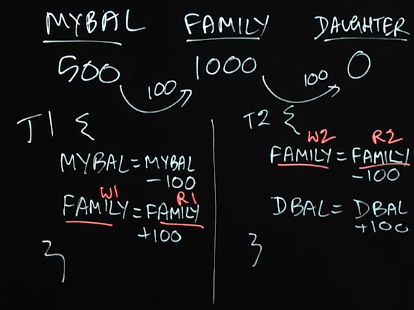 MYBAL FAMILY DAUGHTER
500 1000 0
100 100
T1 {
MYBAL = MYBAL
-100
W1 R1
FAMILY = FAMILY
+100
}
T2 {
W2 R2
FAMILY = FAMILY
-100
DBAL = DBAL
+100
}